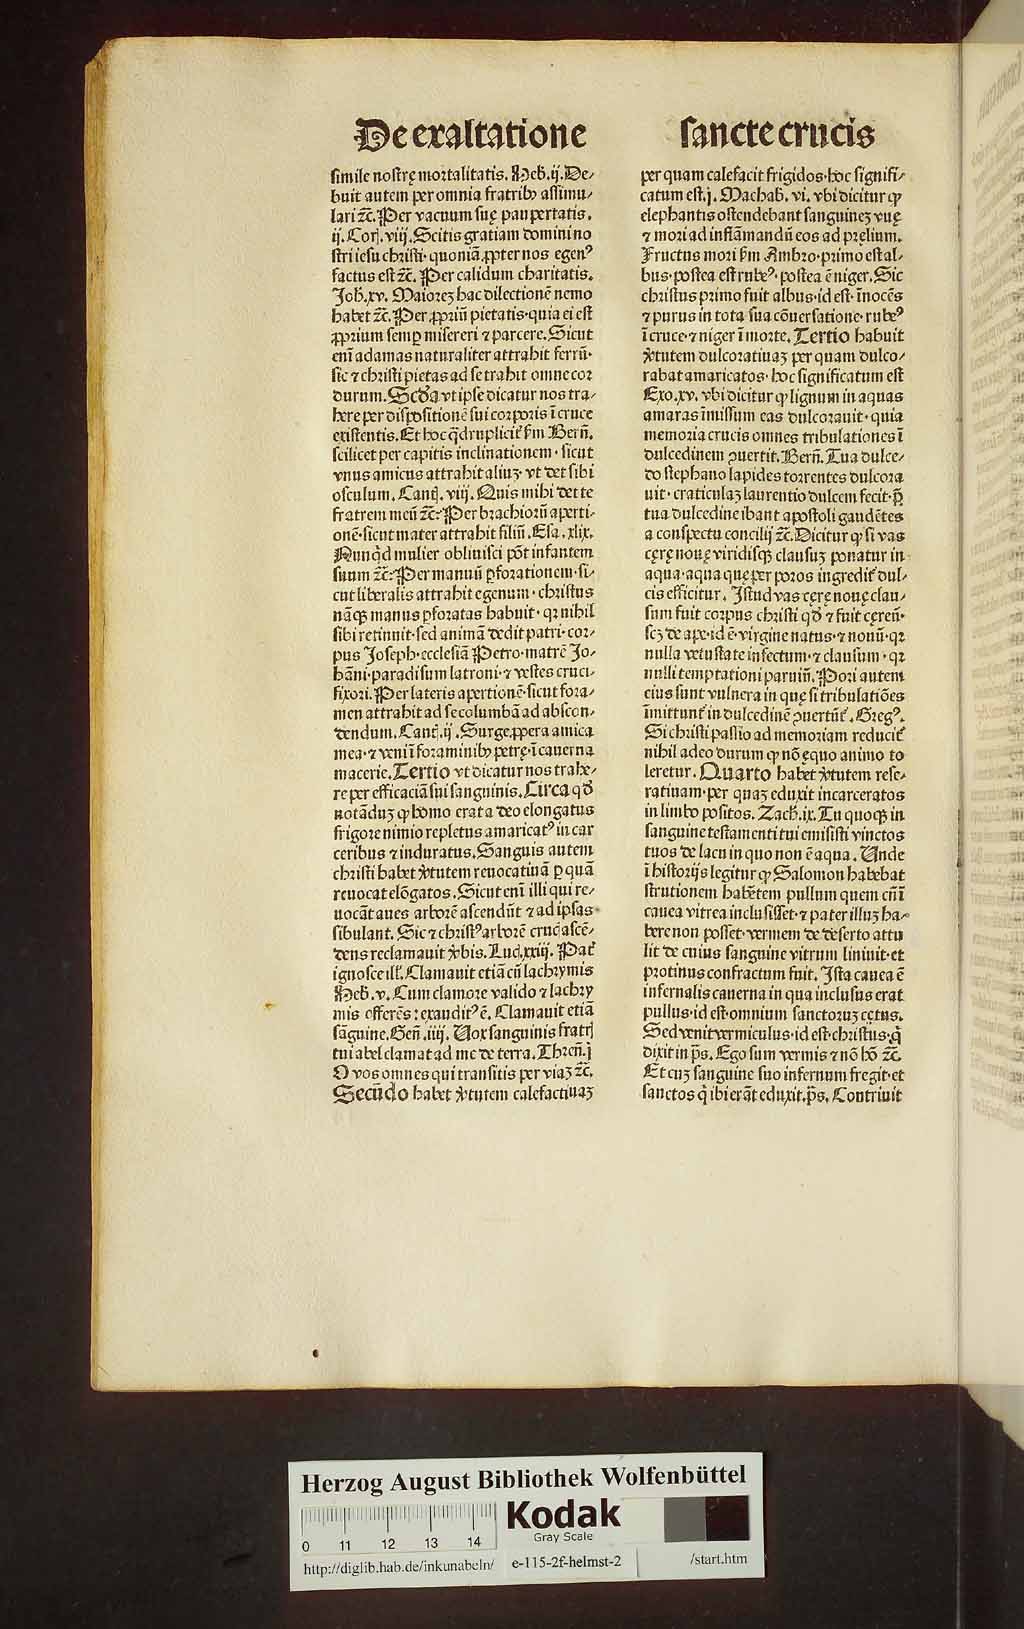 De exaltatione
simile nostrę mortalitatis. Heb̄. ij. De-
buit autem per omnia fratribꝰ assimu-
lari ⁊c̄. Per vacuum suę paupertatis.
ij. Corį. viij. Scitis gratiam domini no
stri iesu christi· quoniā ꝓpter nos egenꝰ
factus est ⁊c̄. Per calidum charitatis.
Joh̄. xv. Maioreꝫ hac dilectionē nemo
habet ⁊c̄. Per ꝓpriū pietatis· quia ei est
ꝓprium semꝑ misereri ⁊ parcere. Sicut
eni̅ adamas naturaliter attrahit ferrū·
sic ⁊ christi pietas ad se trahit omne cor
durum. Scd̓a vt ipse dicatur nos tra-
here per dispositionē sui corporis ī cruce
existentis. Et hoc q̇druplicit̓ ẜm Bern̄.
scilicet per capitis inclinationem· sicut
vnus amicus attrahit aliuꝫ· vt det sibi
osculum. Canṭ. viij. Quis mihi det te
fratrem meū ⁊c̄? Per brachiorū aperti-
onē· sicut mater attrahit filiū. Esa. xlix.
Nunq̇d mulier obliuisci pōt infantem
suum ⁊c̄? Per manuū ꝑforationem· si-
cut liberalis attrahit egenum· christus
nāqꝫ manus ꝑforatas habuit· qꝛ nihil
sibi retinuit· sed animā dedit patri· cor-
pus Joseph· ecclesiā Petro· matrē Jo-
hāni· paradisum latroni· ⁊ vestes cruci-
fixori. Per lateris apertionē· sicut fora-
men attrahit ad se columbā ad abscon-
dendum. Canṭ. ij. Surge, ꝓpera amica
mea· ⁊ veni ī foraminibꝰ petrę· ī cauerna
macerie. Tertio vt dicatur nos trahe-
re per efficaciā sui sanguinis. Circa qd̓
notāduꝫ ꝙ homo erat a deo elongatus
frigore nimio repletus amaricatꝰ in car
ceribus ⁊ induratus. Sanguis autem
christi habet v̓tutem reuocatiuā ꝑ quā
reuocat elōgatos. Sicut eni̅ illi qui re-
uocāt aues arborē ascendūt ⁊ ad ipsas
sibulant. Sic ⁊ christꝰ arborē cruc̓ ascē-
dens reclamauit v̓bis. Luc̣. xxiij. Pat̓
ignosce ill̓. Clamauit etiā cū lachrymis
Heb̄. v. Cum clamore valido ⁊ lachry
mis offerēs: exauditꝰ ē. Clamauit etiā
sāguine. Gen̄. iiij. Uox sanguinis fratrį
tui abel clamat ad me de terra. Thren̄. j
O vos omnes qui transitis per viaꝫ ⁊c̄.
Secūdo habet v̓tutem calefactiuaꝫ
sancte crucis
per quam calefacit frigidos· hoc signifi-
catum est. j. Machab̄. vi. vbi dicitur ꝙ
elephantis ostendebant sanguineꝫ vuę
⁊ mori ad inflāmandū eos ad pręlium.
Fructus mori ẜm Ambro· primo est al-
bus· postea est rubeꝰ· postea ē niger. Sic
christus primo fuit albus· id est· īnocēs
⁊ purus in tota sua cōuersatione· rubeꝰ
ī cruce· ⁊ niger ī morte. Tertio habuit
v̓tutem dulcoratiuaꝫ per quam dulco-
rabat amaricatos· hoc significatum est
Exo. xv. vbi dicitur ꝙ lignum in aquas
amaras īmissum eas dulcorauit· quia
memoria crucis omnes tribulationes ī
dulcedinem ꝯuertit. Bern̄. Tua dulce-
do stephano lapides torrentes dulcora
uit· craticulaꝫ laurentio dulcem fecit· p̄
tua dulcedine ibant apostoli gaudētes
a conspectu concilij ⁊c̄. Dicitur ꝙ si vas
cęrę nouę viridisqꝫ clausuꝫ ponatur in
aqua· aqua quę per poros ingredit̓ dul-
cis efficitur. Istud vas cęrę nouę clau-
sum fuit corpus christi qd̓ ⁊ fuit cęreū·
scꝫ de ape· id ē· virgine natus· ⁊ nouū· qꝛ
nulla vetustate infectum· ⁊ clausum· qꝛ
nulli temptationi paruiū. Pori autem
eius sunt vulnera in quę si tribulatiōes
īmittunt̓ in dulcedinē ꝯuertūt̓. Gregꝰ.
Si christi passio ad memoriam reducit̓
nihil adeo durum ꝙ nō ęquo animo to
leretur. Quarto habet v̓tutem rese-
ratiuam· per quaꝫ eduxit incarceratos
in limbo positos. Zach̄. ix. Tu quoqꝫ in
sanguine testamenti tui emisisti vinctos
tuos de lacu in quo non ē aqua. Unde
ī historijs legitur ꝙ Salomon habebat
strutionem habētem pullum quem cū ī
cauea vitrea inclusisset· ⁊ pater illuꝫ ha-
bere non posset· vermem de deserto attu
lit de cuius sanguine vitrum liniuit· et
protinus confractum fuit. Ista cauea ē
infernalis cauerna in qua inclusus erat
pullus· id est· omnium sanctoruꝫ cętus.
Sed venit vermiculus· id est· christus· q̇
dixit in p̄s. Ego sum vermis ⁊ nō hō ⁊c̄.
Et cuꝫ sanguine suo infernum fregit· et
sanctos q̇ ibi erāt eduxit. p̄s. Contriuit
Herzog August Bibliothek Wolfenbüttel
0 11 12 13 14
Kodak
Gray Scale
http://diglib.hab.de/inkunabeln/ e-115-2f-helmst-2 /start.htm